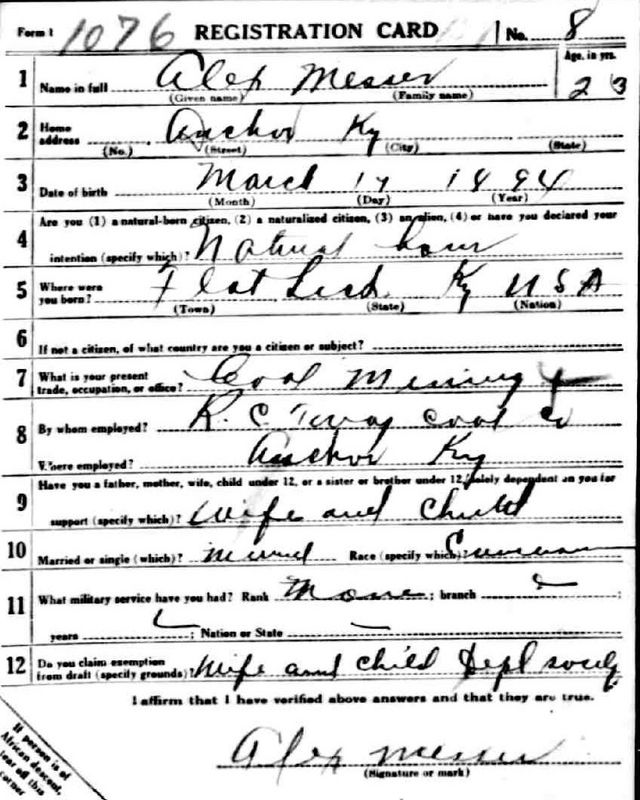 Form 1 1076 REGISTRATION CARD No. 8
1 Name in full Alex Messer Age, in yrs. 23
(Given name) (Family name)
2 Home address Anchor Ky
(No.) (Street) (City) (State)
3 Date of birth March 17 1894
(Month) (Day) (Year)
4 Are you (1) a natural-born citizen, (2) a naturalized citizen, (3) an alien, (4) or have you declared your
intention (specify which)? Natural born
5 Where were you born? Flat Lick Ky USA
(Town) (State) (Nation)
6 If not a citizen, of what country are you a citizen or subject?
7 What is your present trade, occupation, or office? Coal Mining
8 By whom employed? R. C Tway Coal Co
Where employed? Anchor Ky
9 Have you a father, mother, wife, child under 12, or a sister or brother under 12, solely dependent on you for
support (specify which)? Wife and Child
10 Married or single (which)? Married Race (specify which)?
11 What military service have you had? Rank None ; branch ;
years ; Nation or State
12 Do you claim exemption from draft (specify grounds)? Wife and Child Dept solely
I affirm that I have verified above answers and that they are true.
Alex Messer
(Signature or mark)
If person is of
African descent,
tear off this
corner